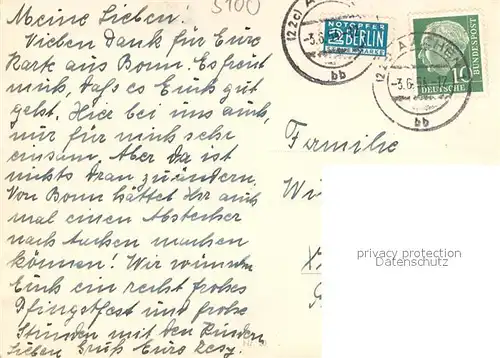 5100
Meine Lieben!
Vielen Dank für Eure
Karte aus Bonn. Es freut
mich, daß es Euch gut
geht. Hier bei uns auch,
nur für mich sehr
einsam. Aber da ist
nichts dran zu ändern.
Von Bonn hättet Ihr auch
mal einen Abstecher
nach Aachen machen
können! Wir wünschen
Euch ein recht frohes
Pfingstfest und frohe
Stunden mit den Kindern
Lieben Gruß Eure
NOTOPFER
2 BERLIN
STEUERMARKE
(22c) A
-3.6.
bb
AACHEN
-3.6.
bb
10
DEUTSCHE
BUNDESPOST
Familie
Wi
privacy protection
Datenschutz